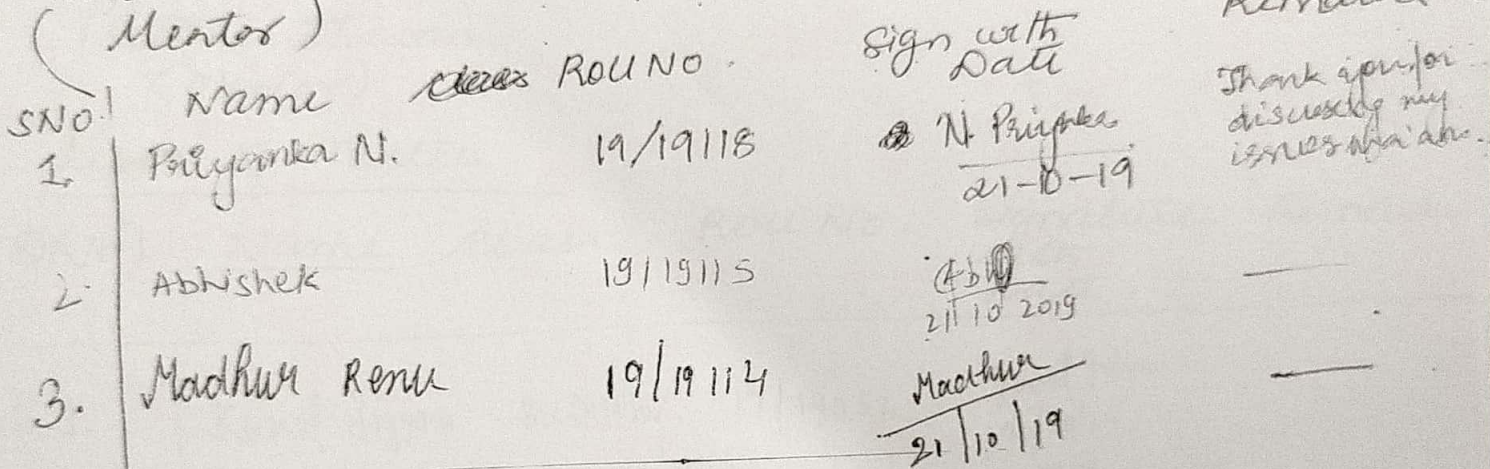 (Mentor)
SNO. Name ROLL NO. Sign with Date
1. Priyanka N. 19/19118 N. Priyanka Thank you for discussing my issues Ma'am.
21-10-19
2. Abhishek 19/19115 —
21 10 2019
3. Madhur Renu 19/19114 Madhur —
21/10/19